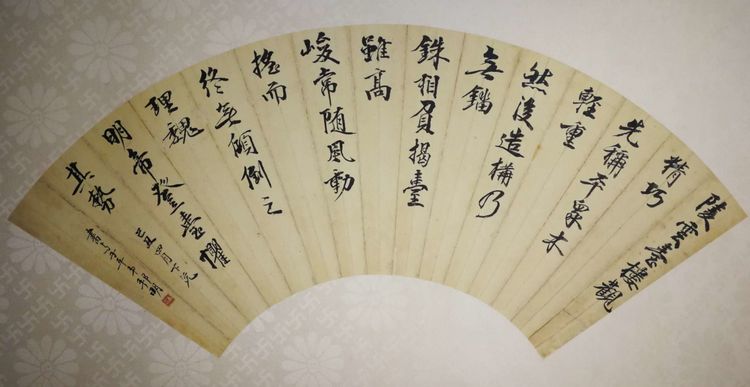 陵雲臺樓觀
精巧
先稱平衆木
輕重
然後造構乃
無錙
銖相負揭臺
雖高
峻常随風動
搖而
終無傾倒之
理魏
明帝登臺懼
其勢
己丑四月下浣
書